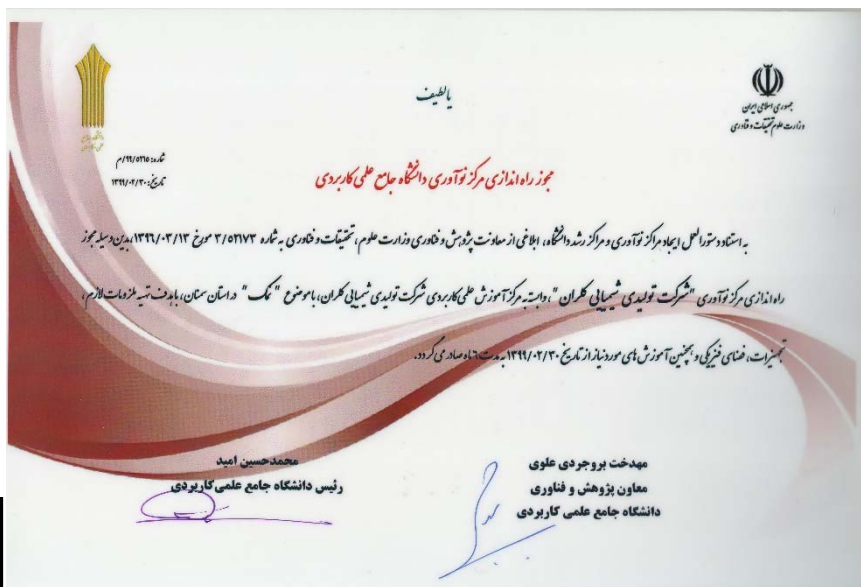 یا لطیف
جمهوری اسلامی ایران
وزارت علوم تحقیقات و فناوری
شماره: ۹۹/۵۲۱۵/م
تاریخ: ۱۳۹۹/۰۲/۳۰
مجوز راه اندازی مرکز نوآوری دانشگاه جامع علمی کاربردی
به استناد دستورالعمل ایجاد مراکز نوآوری و مراکز رشد دانشگاه، ابلاغی از معاونت پژوهش و فناوری وزارت علوم، تحقیقات و فناوری به شماره ۳/۵۲۱۷۳ مورخ ۱۳۹۶/۰۳/۱۳، بدین وسیله مجوز
راه اندازی مرکز نوآوری "شرکت تولیدی شیمیایی کلران"، وابسته به مرکز آموزش علمی کاربردی شرکت تولیدی شیمیایی کلران، با موضوع "نمک" در استان سمنان، با هدف تهیه ملزومات لازم،
تجهیزات، فضای فیزیکی و همچنین آموزش های مورد نیاز از تاریخ ۱۳۹۹/۰۲/۳۰ به مدت ۶ ماه صادر می گردد.
مهدخت بروجردی علوی
معاون پژوهش و فناوری
دانشگاه جامع علمی کاربردی
محمدحسین امید
رئیس دانشگاه جامع علمی کاربردی